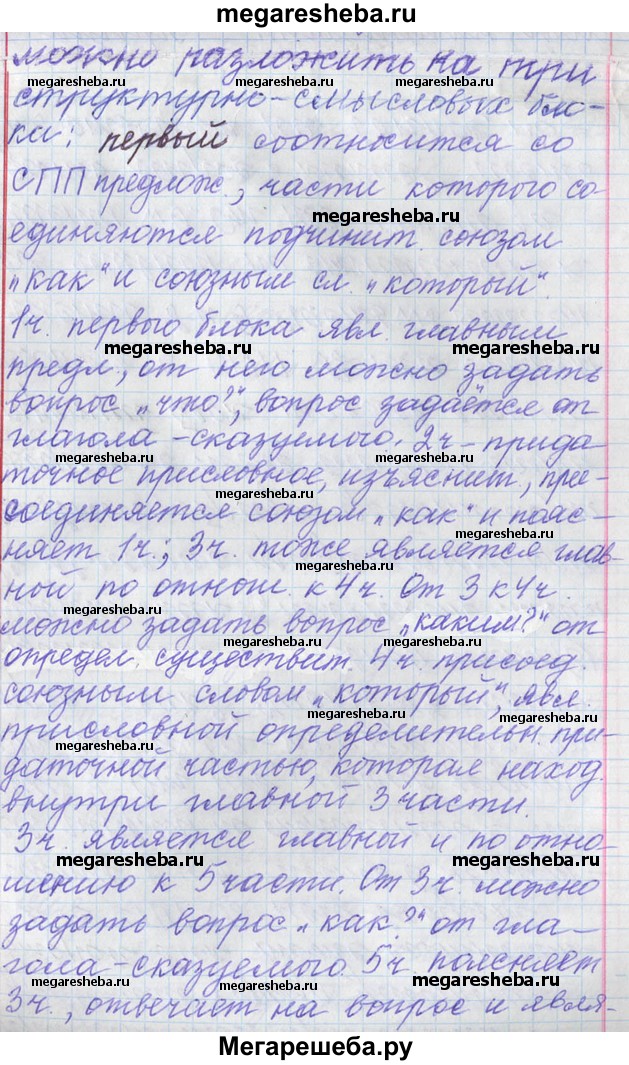 megaresheba.ru
можно разложить на три
megaresheba.ru megaresheba.ru
структурно-смысловых бло-
ка: первый соотносится со
megaresheba.ru megaresheba.ru
СПП предлож., части которого со
megaresheba.ru
единяются подчинит. союзом
„как“ и союзным сл. „который“.
1ч. первого блока явл. главным
megaresheba.ru megaresheba.ru
предл., от него можно задать
вопрос „что?“, вопрос задаётся от
megaresheba.ru
глагола-сказуемого. 2ч - прида-
точное присловное, изъяснит., при-
megaresheba.ru
соединяется союзом „как“ и пояс-
megaresheba.ru
няет 1ч.; 3ч. тоже является глав-
megaresheba.ru
ной по отнош. к 4ч. От 3 к 4ч.
megaresheba.ru
можно задать вопрос „каким?“ от
megaresheba.ru
определ. существит. 4ч. присоед.
союзным словом „который“, явл.
megaresheba.ru
присловной определительн. при-
megaresheba.ru
даточной частью, которая наход.
megaresheba.ru
внутри главной 3 части.
3ч. является главной и по отно-
megaresheba.ru megaresheba.ru
шению к 5 части. От 3ч. можно
задать вопрос „как?“ от гла-
megaresheba.ru
гола-сказуемого. 5ч поясняет
megaresheba.ru
3ч., отвечает на вопрос и явля-
megaresheba.ru megaresheba.ru
Мегарешеба.ру